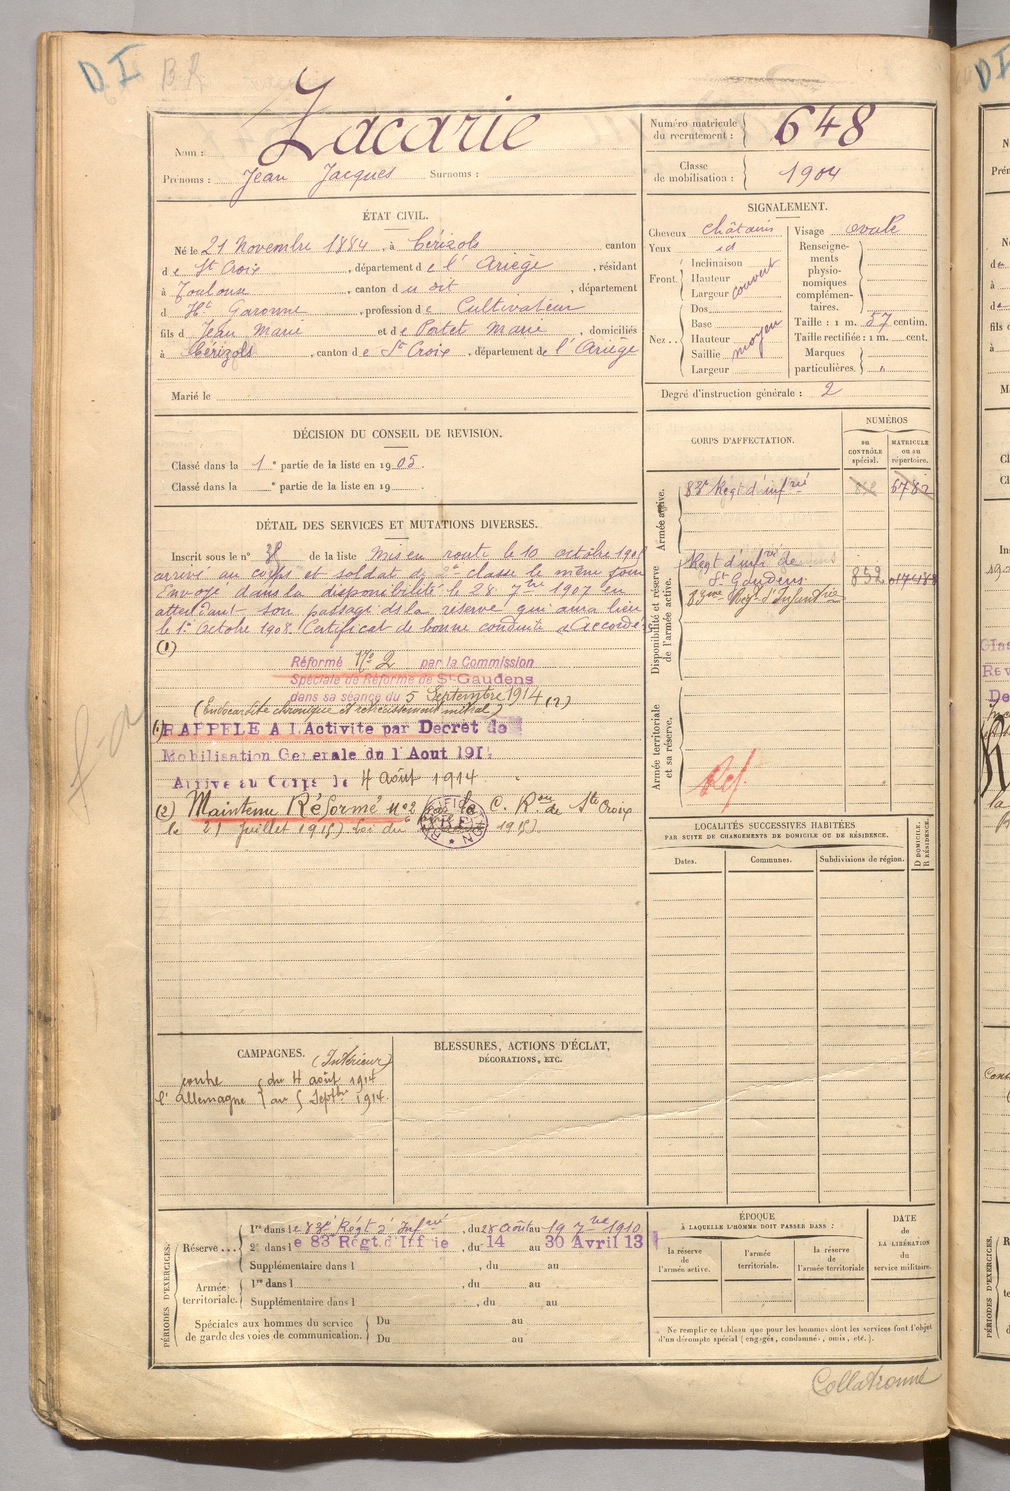 D I
B R
Nom : Zacarie
Prénoms : Jean Jacques Surnoms :
Numéro matricule du recrutement : 648
Classe de mobilisation : 1904
ÉTAT CIVIL.
Né le 21 Novembre 1884, à Cérizols canton
de St Croix, département de l'Ariège, résidant
à Toulouse, canton du dit, département
d Hte Garonne, profession de Cultivateur
fils de Jean Marie et de Portet Marie, domiciliés
à Cérizols, canton de Ste Croix, département de l'Ariège
Marié le
SIGNALEMENT.
Cheveux châtains
Yeux id
Front Inclinaison
Hauteur
Largeur couvert
Nez Dos
Base
Hauteur moyen
Saillie
Largeur
Visage ovale
Renseignements physionomiques complémentaires.
Taille : 1 m. 57 centim.
Taille rectifiée : 1 m. cent.
Marques particulières. "
Degré d'instruction générale : 2
DÉCISION DU CONSEIL DE REVISION.
Classé dans la 1e partie de la liste en 1905.
Classé dans la e partie de la liste en 19 .
DÉTAIL DES SERVICES ET MUTATIONS DIVERSES.
Inscrit sous le n° 38 de la liste Mis en route le 10 octobre 1905
arrivé au corps et soldat de 2e classe le même jour
Envoyé dans la disponibilité le 28 7bre 1907 en
attendant son passage ds la réserve qui aura lieu
le 1er Octobre 1908. Certificat de bonne conduite "Accordé"
(1)
Réformé No 2 par la Commission
Spéciale de Réforme de St-Gaudens
dans sa séance du 5 Septembre 1914 (2)
(Endocardite chronique et rétrécissement mitral)
(1) RAPPELE A L'Activite par Decret de
Mobilisation Generale du 1 Aout 1914
Arrivé au Corps le 4 août 1914.
(2) Maintenu Réformé no 2 par la C. Ron de Ste Croix
le 21 juillet 1915. Loi du 1915.
CORPS D'AFFECTATION.
NUMÉROS
au CONTRÔLE spécial.
MATRICULE ou au répertoire.
Armée active.
83e Régt d'infrie 6782
Disponibilité et réserve de l'armée active.
Régt d'infrie de
St Gaudens 852
83me Régt d'Infanterie
Armée territoriale et sa réserve.
Ref.
LOCALITÉS SUCCESSIVES HABITÉES
PAR SUITE DE CHANGEMENTS DE DOMICILE OU DE RÉSIDENCE.
D DOMICILE. R RÉSIDENCE.
Dates. Communes. Subdivisions de région.
CAMPAGNES. (Intérieur)
contre du 4 août 1914
l'Allemagne au 5 Septbre 1914
BLESSURES, ACTIONS D'ÉCLAT,
DÉCORATIONS, ETC.
PÉRIODES D'EXERCICES.
Réserve... 1re dans le 83e Régt d'Infrie, du 28 août au 19 7bre 1910
2e dans le 83 Régt d'Infrie, du 14 au 30 Avril 13
Supplémentaire dans l , du au
Armée territoriale. 1re dans l , du au
Supplémentaire dans l , du au
Spéciales aux hommes du service de garde des voies de communication. Du au
Du au
ÉPOQUE
À LAQUELLE L'HOMME DOIT PASSER DANS :
la réserve de l'armée active.
l'armée territoriale.
la réserve de l'armée territoriale
DATE de LA LIBÉRATION du service militaire.
Ne remplir ce tableau que pour les hommes dont les services font l'objet
d'un décompte spécial (engagés, condamnés, omis, etc.).
Collationné